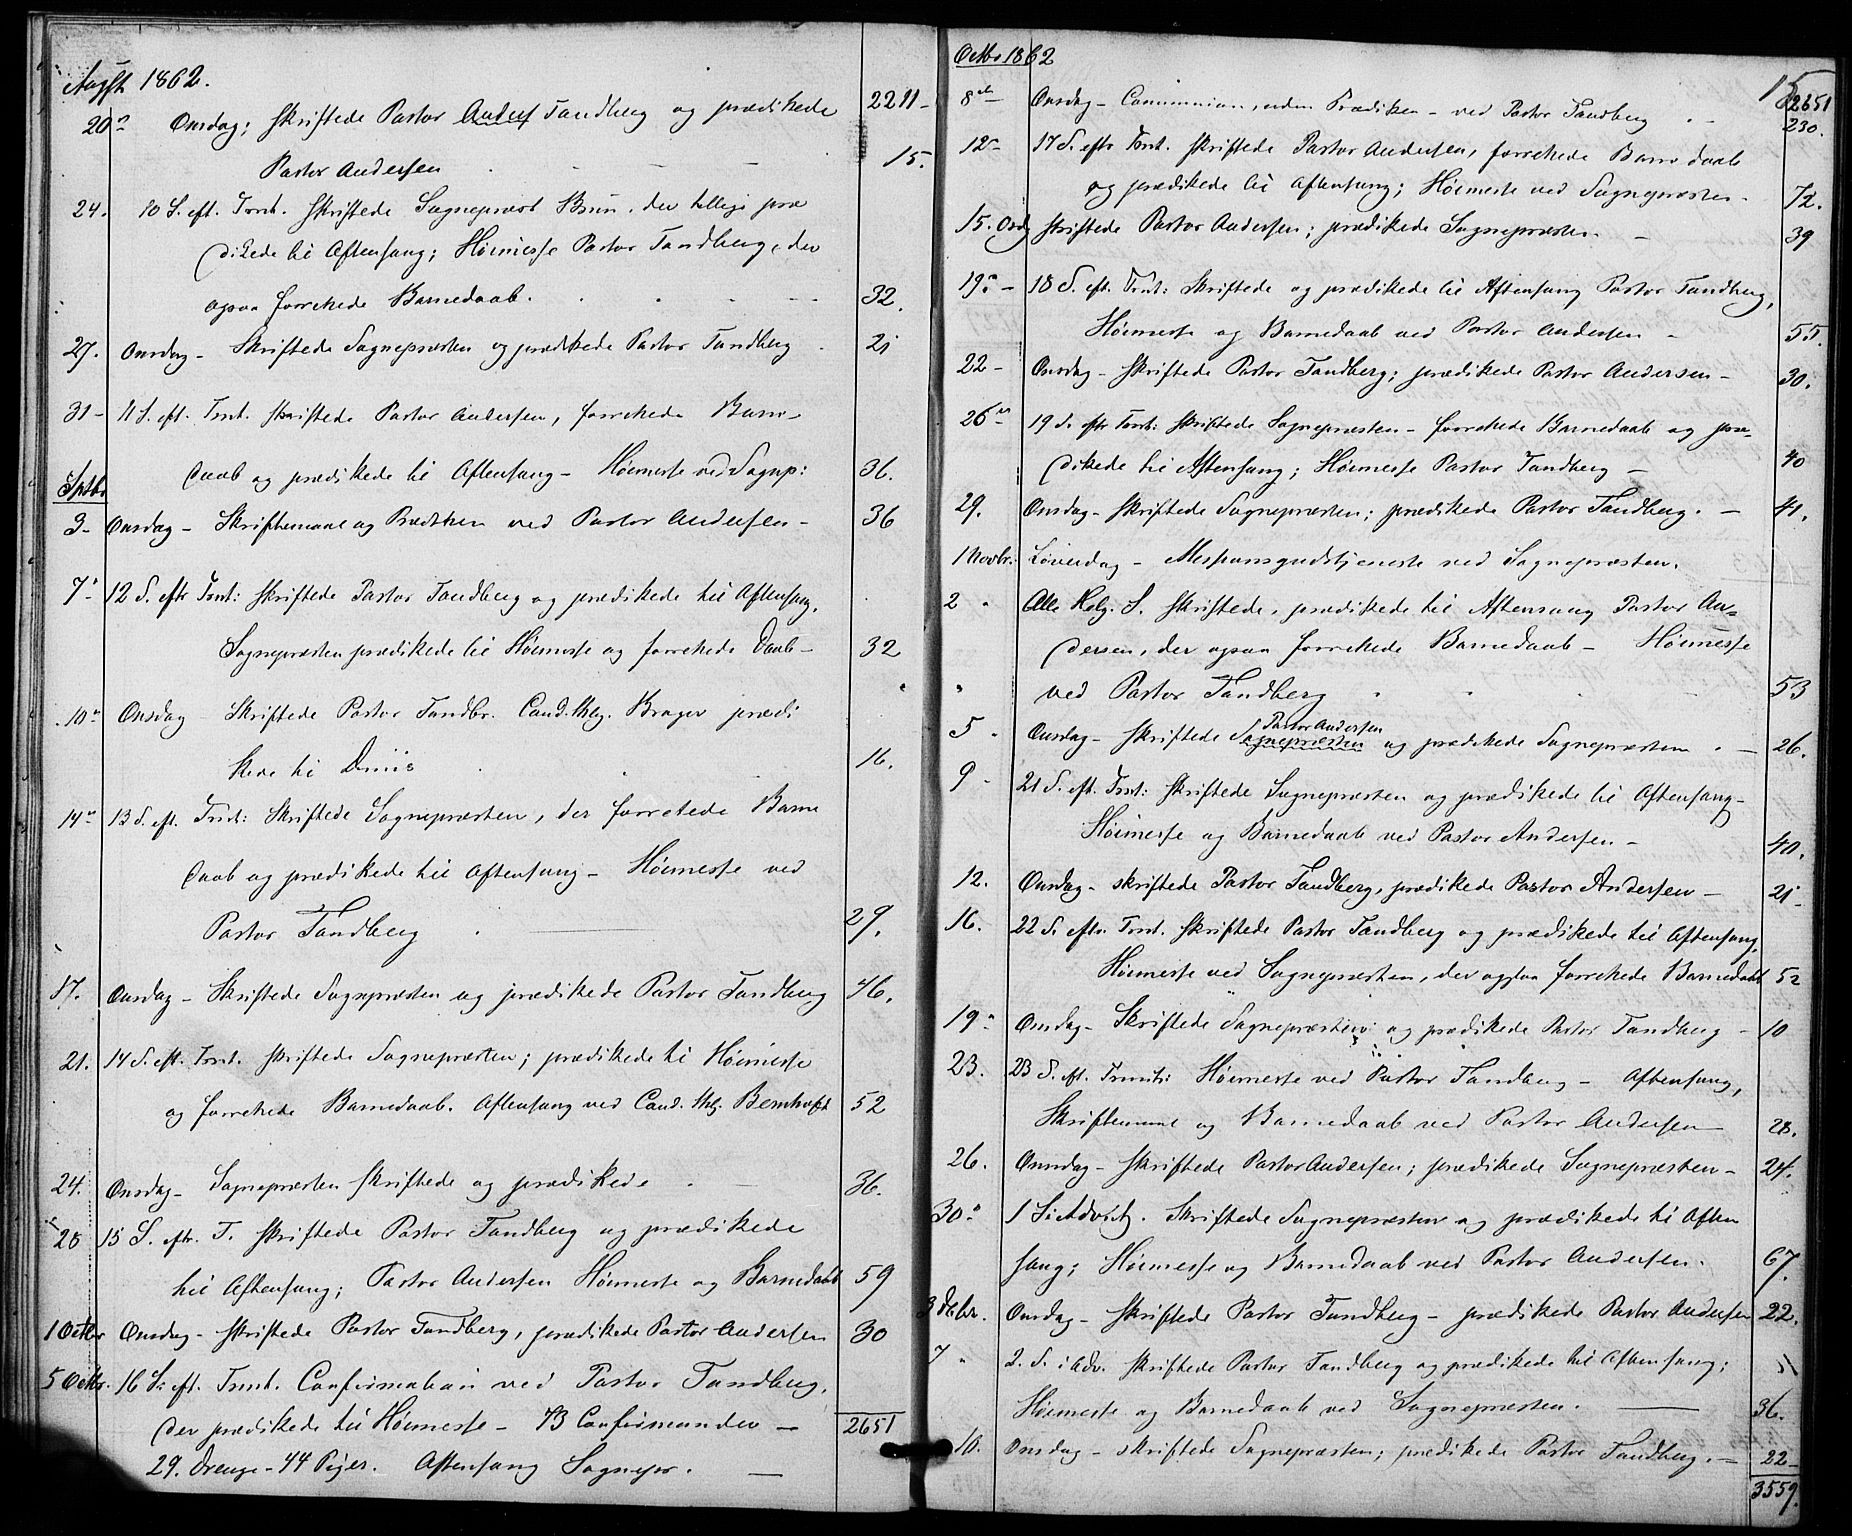 Augst 1862.
2211-
20 Onsdag; skriftede Pastor Anders Tandberg og prædikede
Pastor Andersen 15.
24. 10 S. eft. Trnt. skriftede Sognepræst Brun, der tillige præ
dikede til Aftensang; Høimesse Pastor Tandberg, der
ogsaa forrettede Barnedaab. 32.
27. Onsdag - Skriftede Sognepræsten og prædikede Pastor Tandberg 21
31- 11 S. eft. Trnt. skriftede Pastor Andersen, forrettede Barne-
daab og prædikede til Aftensang - Høimesse ved Sognep: 36.
Sptbr
3- Onsdag - Skriftemaal og Prædiken ved Pastor Andersen - 36
7 12 S. eftr Trnt: skriftede Pastor Tandberg og prædikede til Aftensang.
Sognepræsten prædikede til Høimesse og forrettede Daab - 32
10 Onsdag - Skriftede Pastor Tandbr. Cand. theol. Brager prædi
kede til 16.
14 13 S. eft. Trnt: Skriftede Sognepræsten, der forrettede Barne
daab og prædikede til Aftensang - Høimesse ved
Pastor Tandberg 29.
17. Onsdag - Skriftede Sognepræsten og prædikede Pastor Tandberg 46.
21. 14 S. eft. Trnt. skriftede Sognepræsten; prædikede til Høimesse
og forrettede Barnedaab. Aftensang ved Cand. thlg. Bernhoft 52
24. Onsdag - Sognepræsten skriftede og prædikede 36.
28 15 S. eftr. T. skriftede Pastor Tandberg og prædikede
til Aftensang; Pastor Andersen Høimesse og Barnedaab 59
1 Octbr Onsdag - skriftede Pastor Tandberg, prædikede Pastor Andersen 30
5 Octbr. 16 S. eft. Trnt. Confirmation ved Pastor Tandberg,
der prædikede til Høimesse - 73 Confirmander - 2651
29. Drenge - 44 Piger. Aftensang Sognepr.
Octbr 1862
15
2651
8 Onsdag - Communion, uden Prædiken - ved Pastor Tandberg 230.
12 17 S. eftr Trnt. skriftede Pastor Andersen, forrettede Barnedaab
og prædikede til Aftensang; Høimesse ved Sognepræsten. 72.
15. Onsdg skriftede Pastor Andersen; prædikede Sognepræsten. 39
19 - 18 S. eft. Trnt: Skriftede og prædikede til Aftensang Pastor Tandberg,
Høimesse og Barnedaab ved Pastor Andersen - 55.
22 - Onsdag - skriftede Pastor Tandberg; prædikede Pastor Andersen - 30.
26 19 S. eftr Trnt: skriftede Sognepræsten - forrettede Barnedaab og præ-
dikede til Aftensang; Høimesse Pastor Tandberg - 40
29. Onsdag - skriftede Sognepræsten; prædikede Pastor Tandberg. - 41.
1 Novbr: Løverdag - Mespunsgudstjeneste ved Sognepræsten.
2 Alle Helg. S. skriftede, prædikede til Aftensang Pastor An-
dersen, der ogsaa forrettede Barnedaab - Høimesse
ved Pastor Tandberg 53
5 Onsdag - skriftede Sognepræsten Pastor Andersen og prædikede Sognepræsten. - 26.
9 21 S. eft. Trnt: skriftede Sognepræsten og prædikede til Aftensang -
Høimesse og Barnedaab ved Pastor Andersen - 40.
12. Onsdag - skriftede Pastor Tandberg, prædikede Pastor Andersen - 21-
16. 22 S. eftr. Trnt. skriftede Pastor Tandberg og prædikede til Aftensang,
Høimesse ved Sognepræsten, der ogsaa forrettede Barnedaab 52
19 Onsdag - Skriftede Sognepræsten og prædikede Pastor Tandberg - 10
23. 23 S. eft. Trinit: Høimesse ved Pastor Tandberg - Aftensang,
Skriftemaal og Barnedaab ved Pastor Andersen 28.
26. Onsdag - skriftede Pastor Andersen; prædikede Sognepræsten - 24.
30 1 S. i Advent. Skriftede Sognepræsten og prædikede til Aften
sang; Høimesse og Barnedaab ved Pastor Andersen. 67.
3 Decbr. Onsdag - skriftede Pastor Tandberg - prædikede Pastor Andersen 22.
7 2. S. i Adv. skriftede Pastor Tandberg og prædikede til Aftensang;
Høimesse og Barnedaab ved Sognepræsten. 36.
10. Onsdag - skriftede Sognepræsten; prædikede Pastor Tandberg. - 22-
3559.